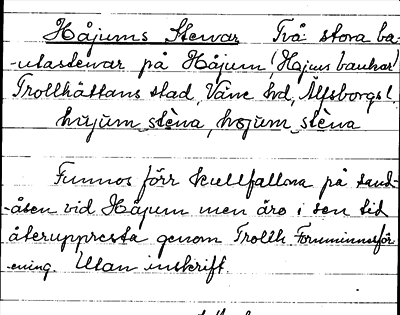 Håjums Stenar Två stora ba-
-utastenar på Håjum (Hojum backar)
Trollhättans stad, Väne hd, Älfsborgs l.
hújùm_stèna, hojum_stèna
Funnos förr kullfallna på sand-
-åsen vid Håjum men äro i sen tid
återuppresta genom Trollh. Fornminnesför
-ening. Utan inskrift.